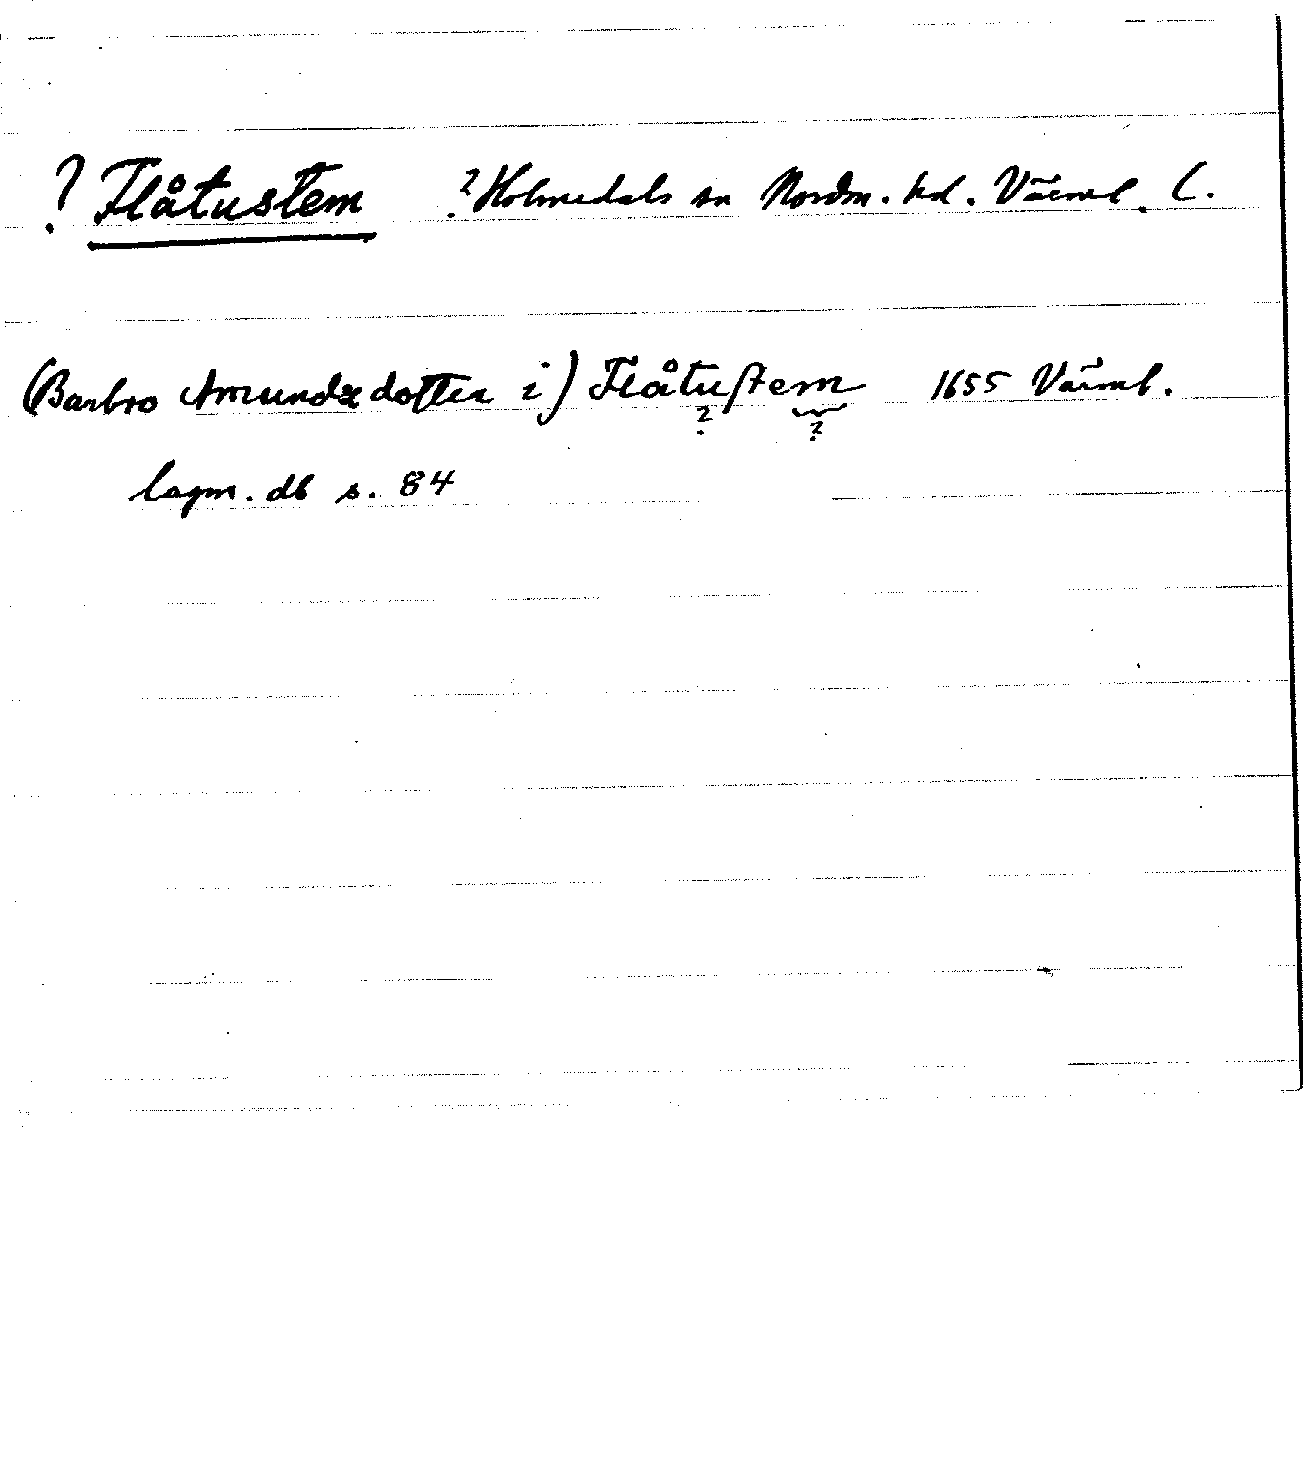 ? Flåtustem ? Holmedals sn Nordm. hd. Värml. l.
(Barbro Amundzdotter i) Flåtustem 1655 Värml.
? ?
lagm. db s. 84